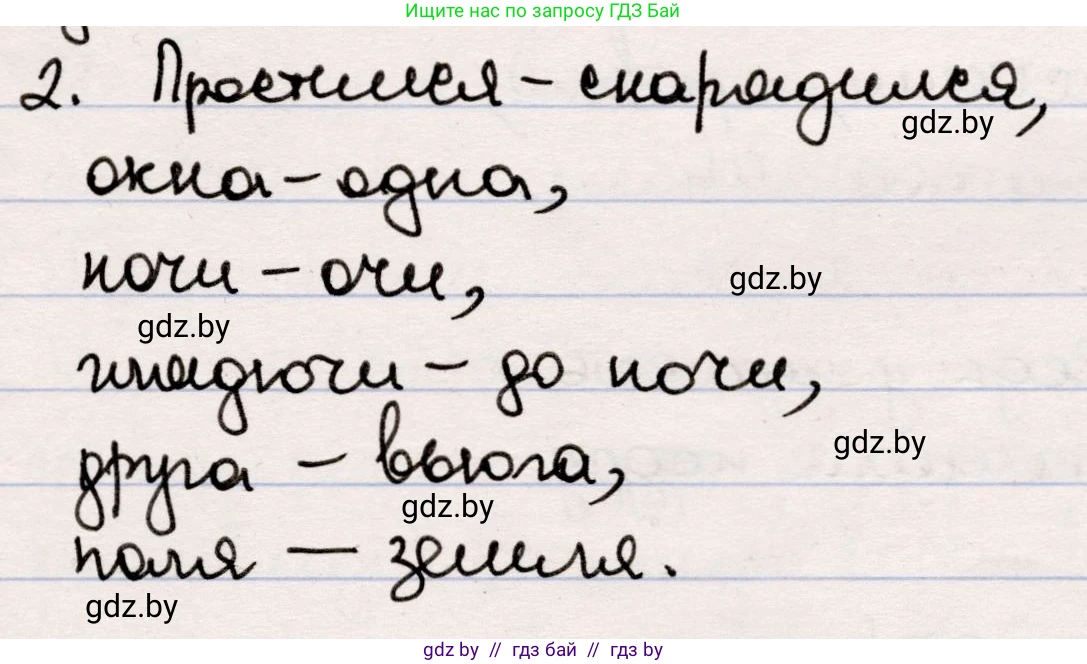 Ищите нас по запросу ГДЗ Бай
2. Простился – снарядился,
gdz.by
окна – одна,
ночи – очи,
gdz.by
gdz.by
глядючи – до ночи,
gdz.by
друга – вьюга,
gdz.by
поля – земля.
gdz.by
gdz.by // гдз бай // гдз by